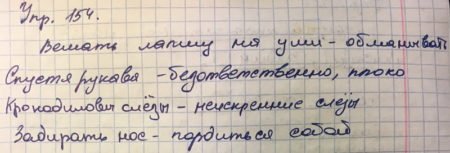 Упр. 154.
Вешать лапшу на уши - обманывать
Спустя рукава - безответственно, плохо
Крокодиловы слёзы - неискренние слёзы
Задирать нос - гордиться собой